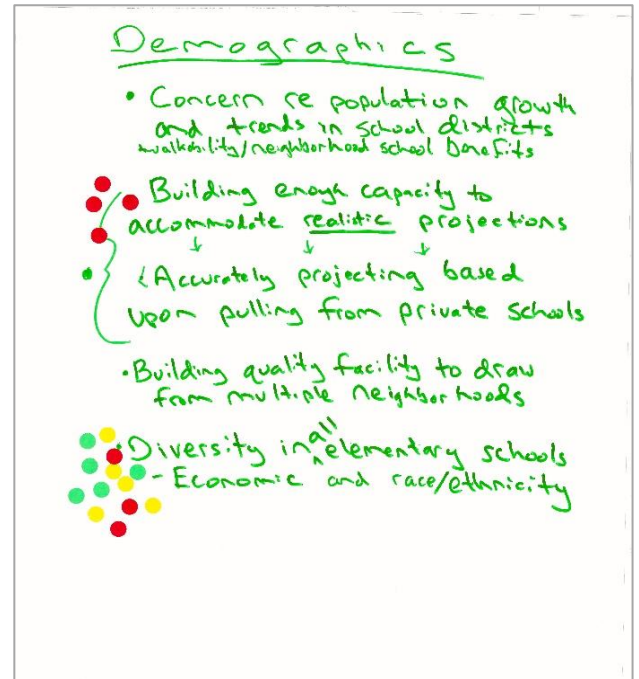 Demographics
• Concern re population growth
and trends in school districts
+walkability/neighborhood school benefits
Building enough capacity to
accommodate realistic projections
↓ ↓ ↓
• Accurately projecting based
upon pulling from private schools
• Building quality facility to draw
from multiple neighborhoods
• Diversity in all elementary schools
- Economic and race/ethnicity